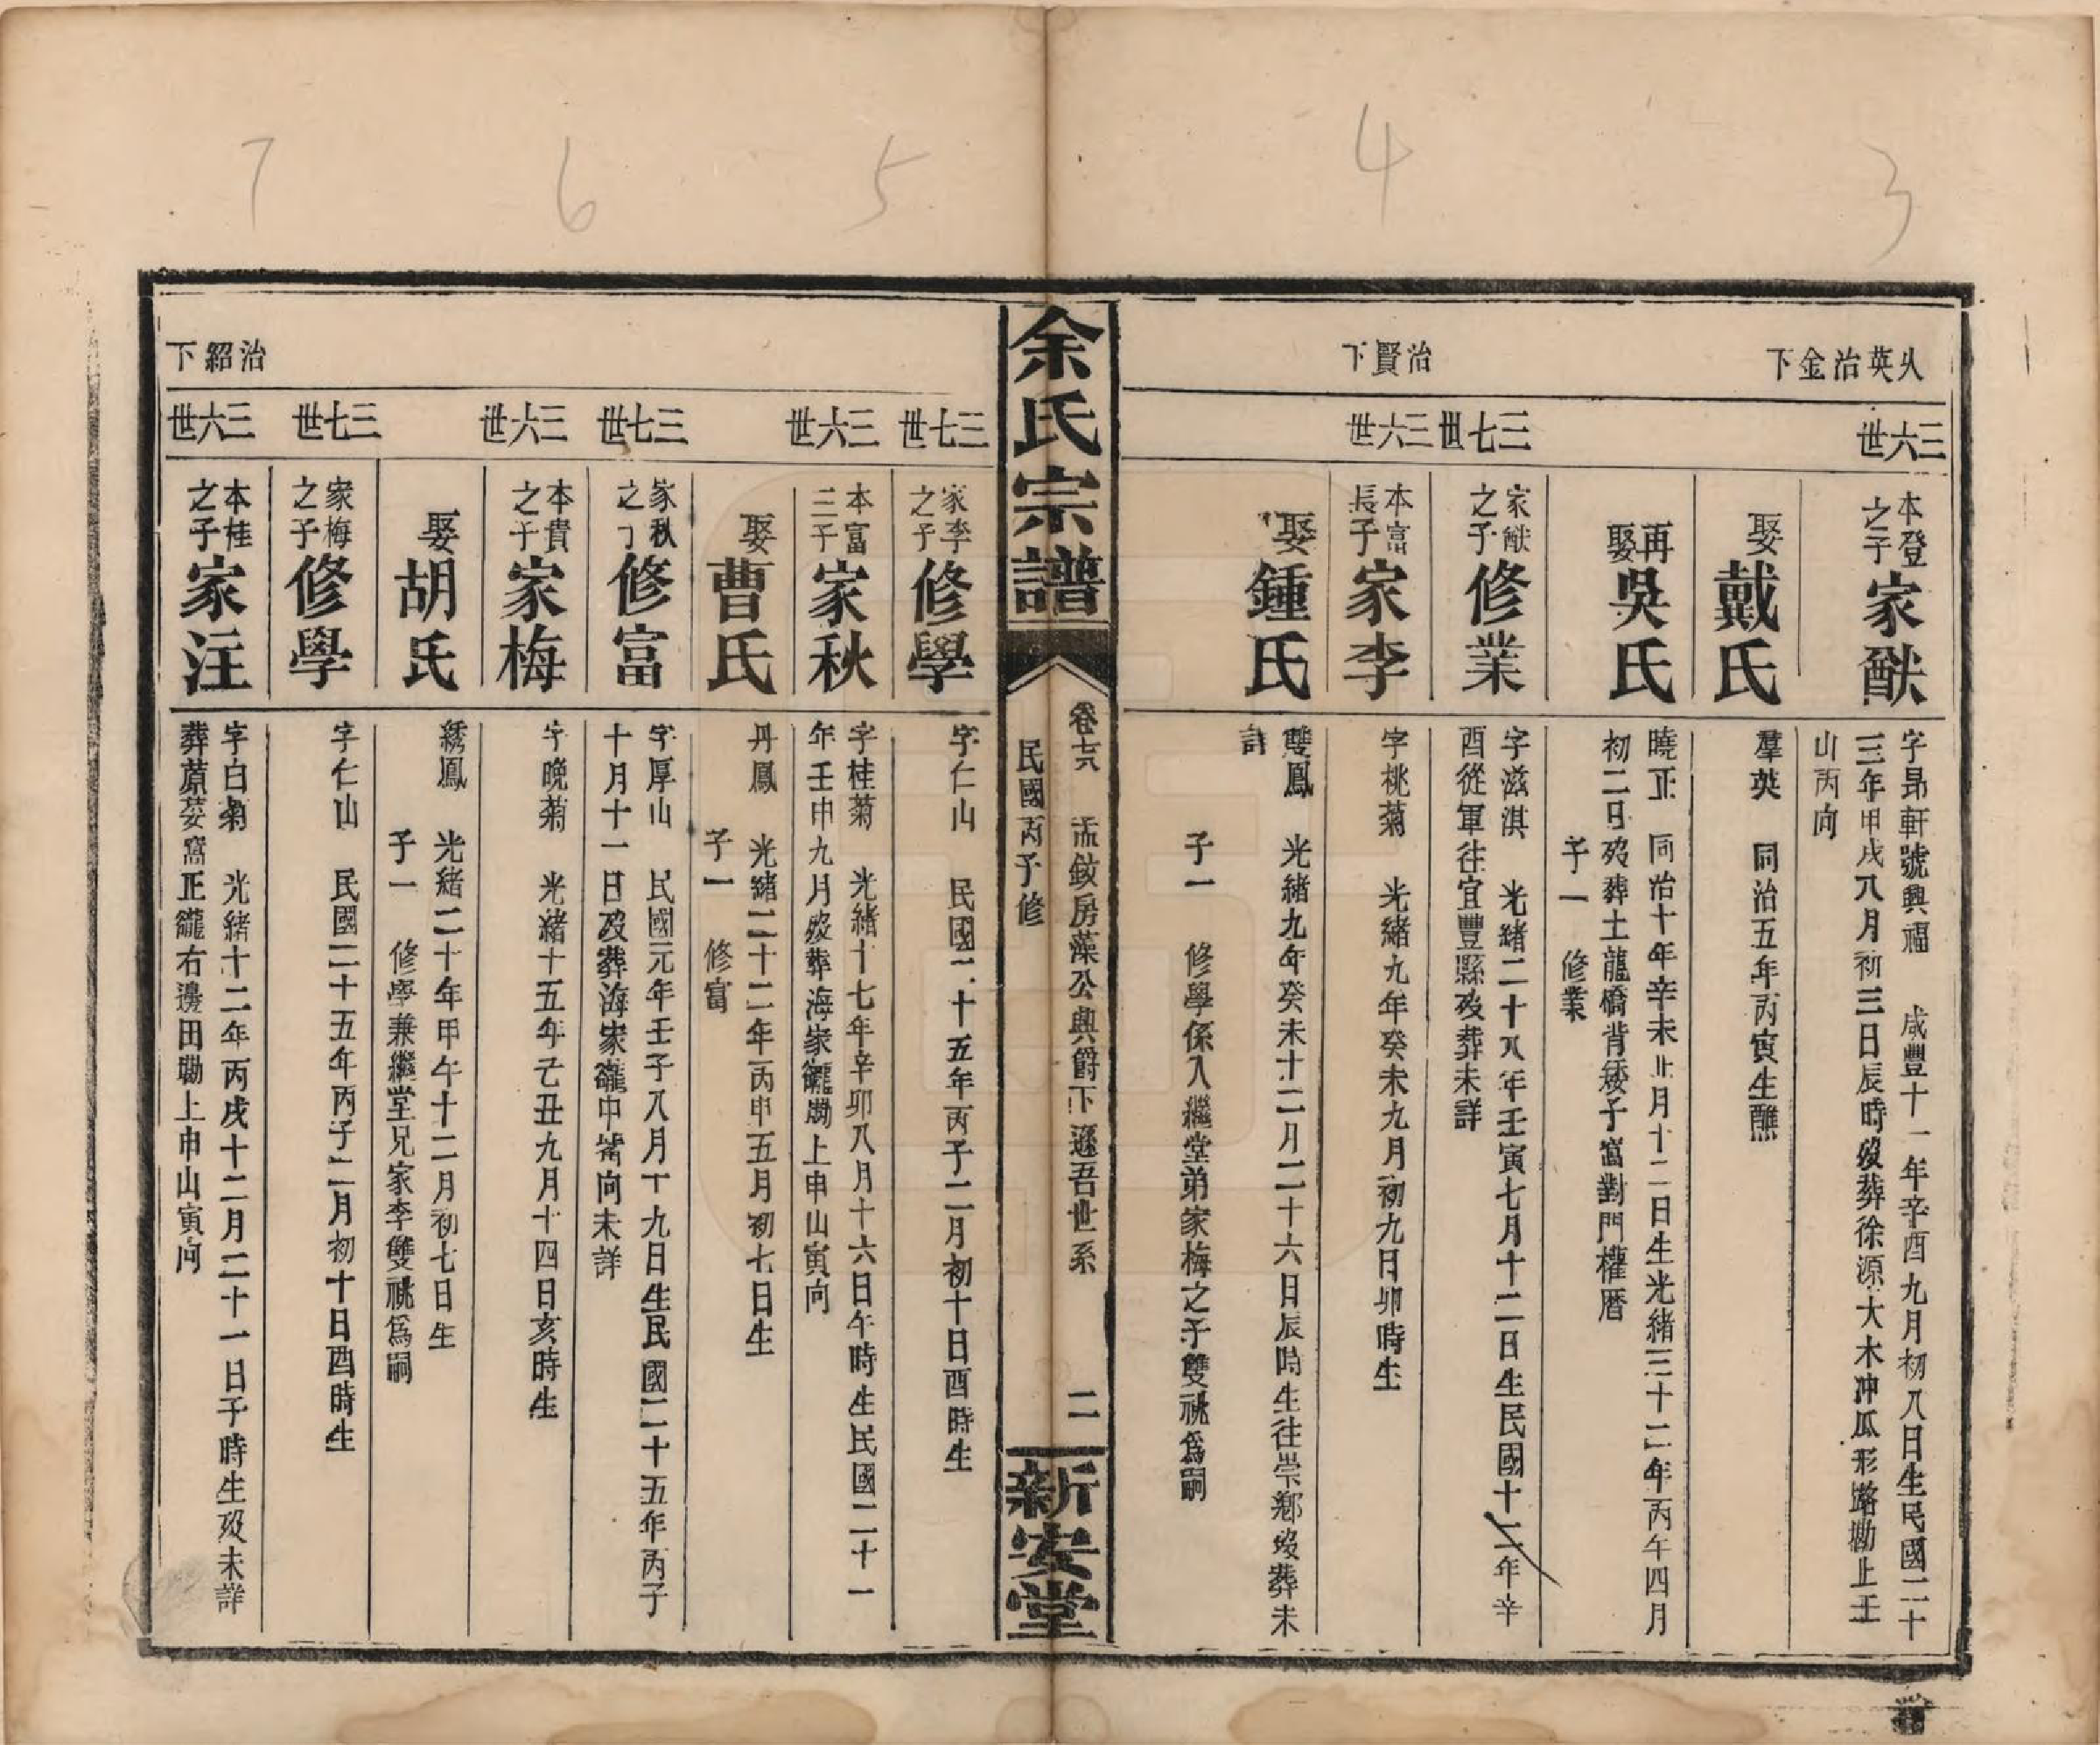 3
4
5
6
7
治金下
三六世
本登之子
家猷
字昻軒號興福 咸豐十一年辛酉九月初八日生民國二十
三年甲戌八月初三日辰時歿葬徐源大木冲瓜形路勘上壬
山丙向
娶
戴氏
羣英 同治五年丙寅生醮
再娶
吳氏
曉正 同治十年辛未 月十二日生光緒三十二年丙午四月
初二日歿葬土龍橋背矮子窩對門權厝
子一 修業
三七世
家猷之子
修業
字滋淇 光緒二十八年壬寅七月十二日生民國十二年辛
酉從軍往宜豐縣歿葬未詳
治賢下
三六世
本富長子
家李
字桃菊 光緒九年癸未九月初九日卯時生
娶
鍾氏
雙鳳 光緒九年癸未十二月二十六日辰時生往崇鄕歿葬未
詳
子一 修學係入繼堂弟家梅之子雙祧爲嗣
余氏宗譜
卷 孟 房藻公與爵下遜吾世系 二
民國丙子修
新安堂
三七世
家李之子
修學
字仁山 民國二十五年丙子二月初十日酉時生
三六世
本富二子
家秋
字桂菊 光緒十七年辛卯八月十六日午時生民國二十一
年壬申九月歿葬海家龓勘上申山寅向
娶
曹氏
丹鳳 光緒二十二年丙申五月初七日生
子一 修富
三七世
家秋之子
修富
字厚山 民國元年壬子八月十九日生民國二十五年丙子
十月十一日歿葬海家龓中嵴向未詳
三六世
本貴之子
家梅
字晩菊 光緒十五年己丑九月十四日亥時生
娶
胡氏
綉鳳 光緒二十年甲午十二月初七日生
子一 修學兼繼堂兄家李雙祧爲嗣
三七世
家梅之子
修學
字仁山 民國二十五年丙子二月初十日酉時生
治紹下
三六世
本桂之子
家汪
字白菊 光緒十二年丙戌十二月二十一日子時生歿未詳
葬蒝荽窩正龓右邊田勘上申山寅向